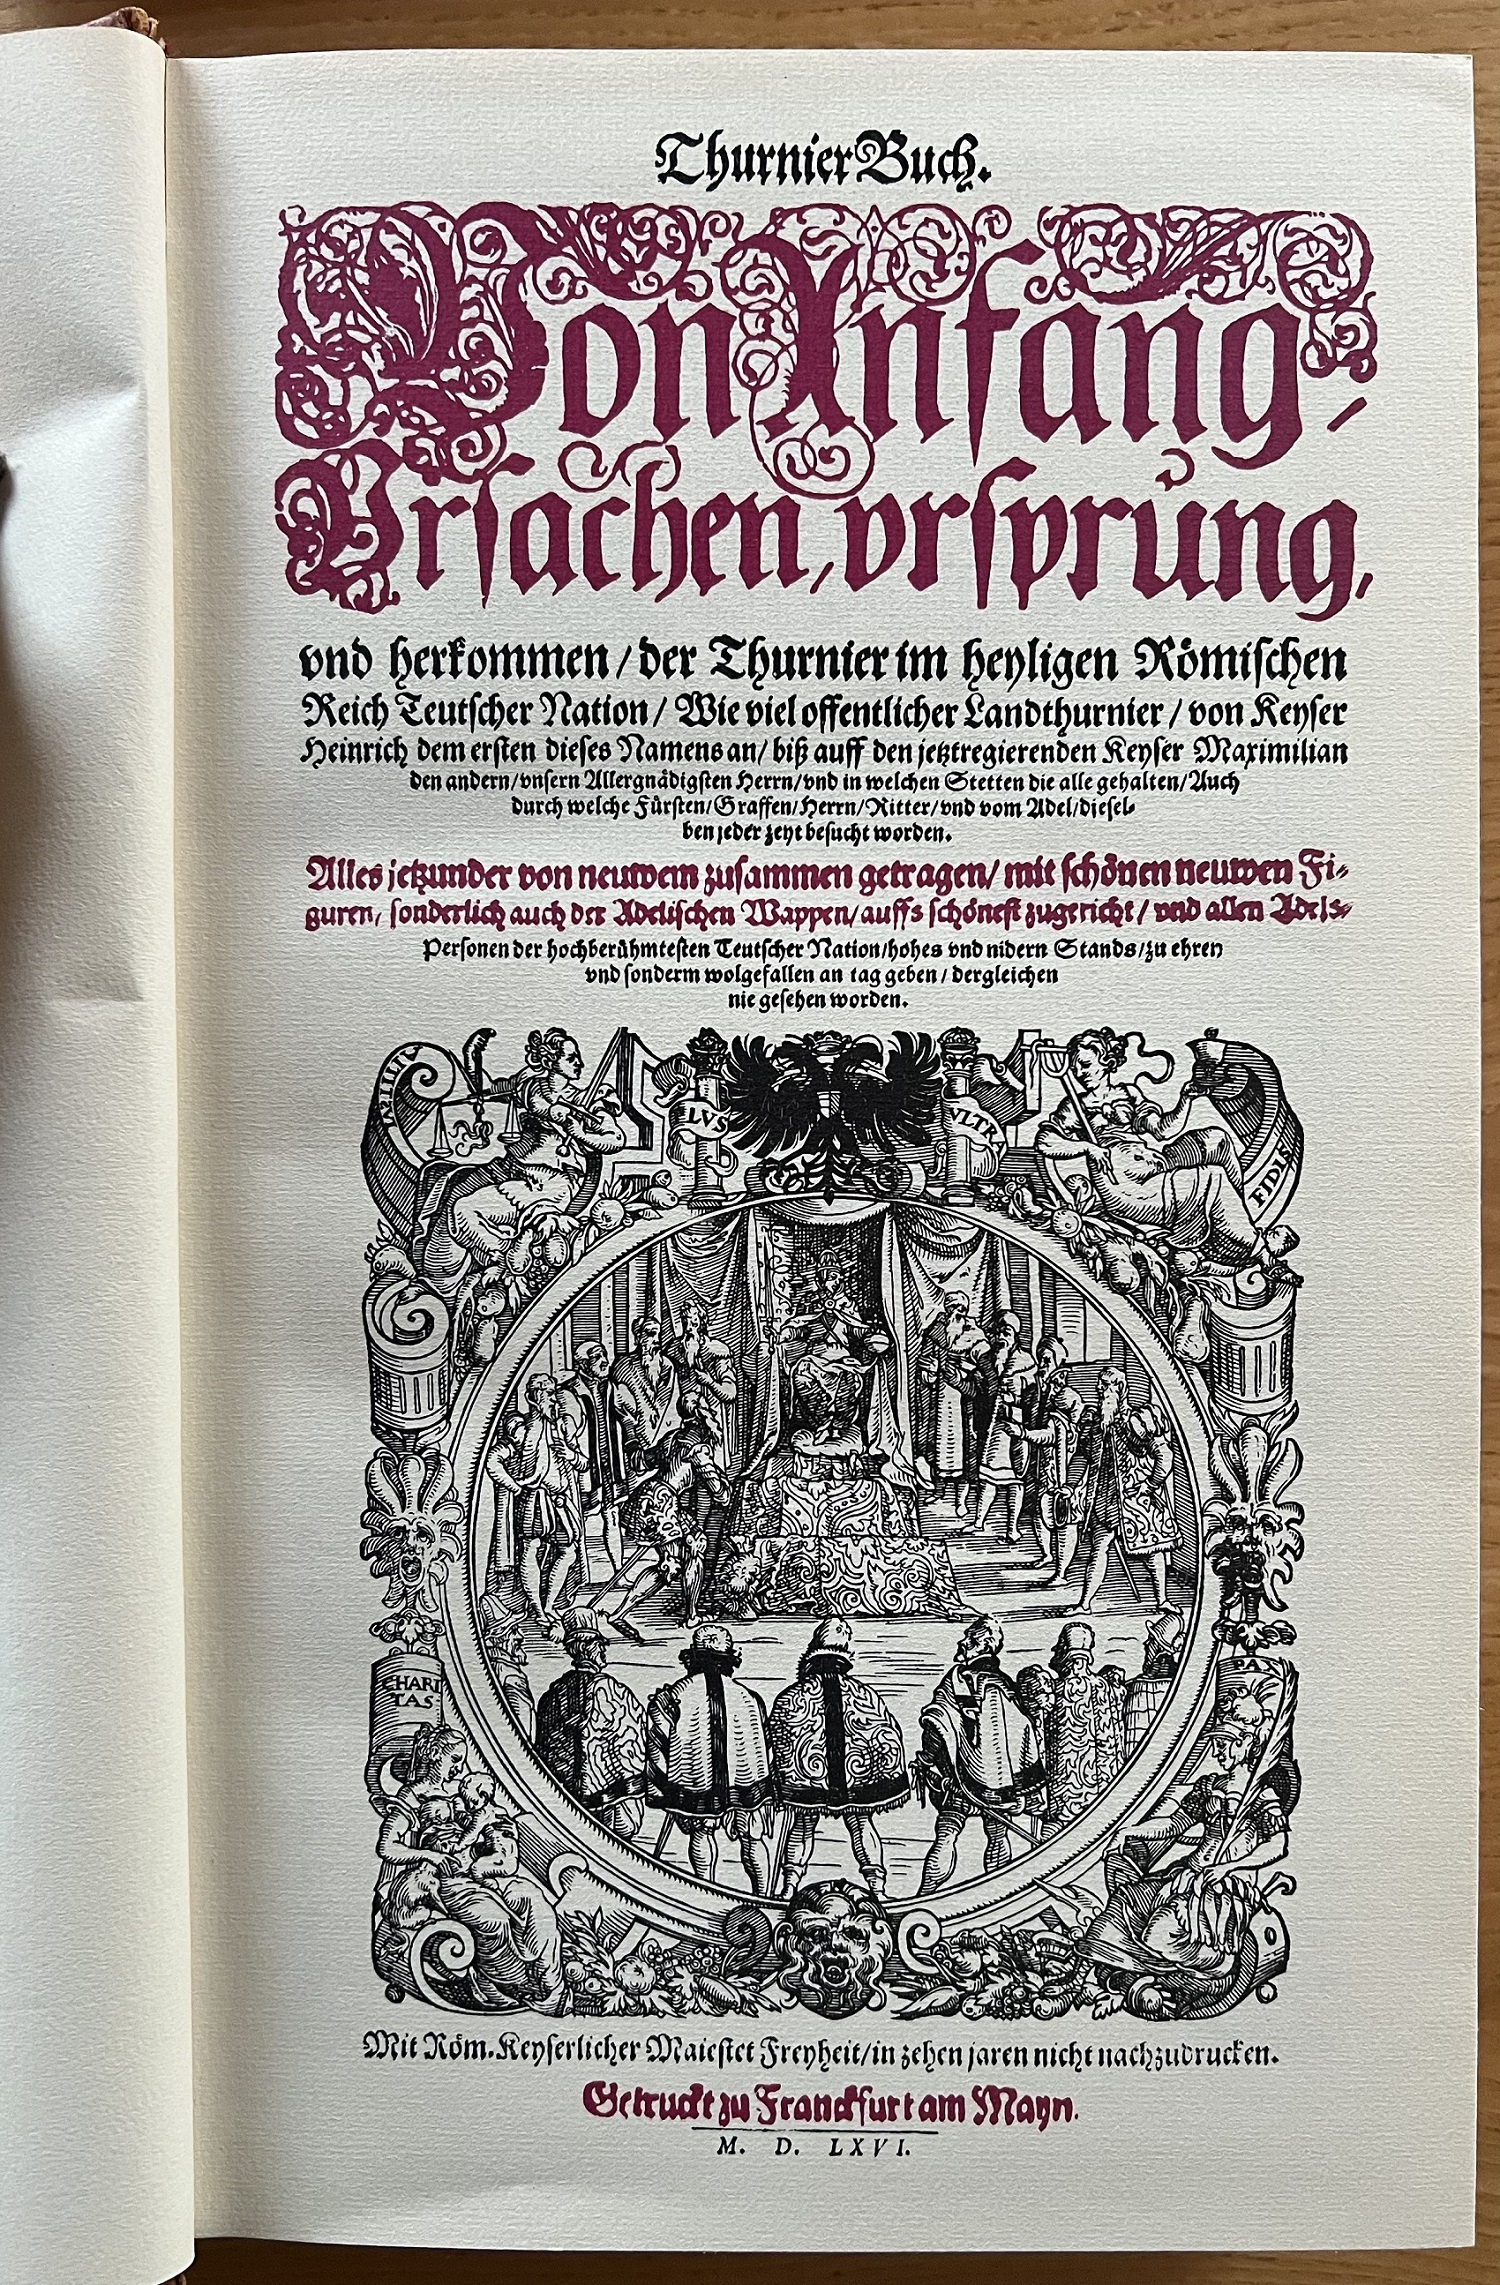 ThurnierBuch.
Von Anfang,
Vrsachen, vrsprung,
vnd herkommen / der Thurnier im heyligen Römischen
Reich Teutscher Nation / Wie viel offentlicher Landthurnier / von Keyser
Heinrich dem ersten dieses Namens an / biß auff den jetztregierenden Keyser Maximilian
den andern / vnsern Allergnädigsten Herrn / vnd in welchen Stetten die alle gehalten / Auch
durch welche Fürsten / Graffen / Herrn / Ritter / vnd vom Adel / diesel-
ben jeder zeyt besucht worden.
Alles jetzunder von neuwem zusammen getragen / mit schönen neuwen Fi-
guren, sonderlich auch der Adelischen Wappen / auffs schönest zugericht / vnd allen Adels-
Personen der hochberühmtesten Teutscher Nation / hohes vnd nidern Stands / zu ehren
vnd sonderm wolgefallen an tag geben / dergleichen
nie gesehen worden.
IVSTITIA
PLVS
VLTRA
FIDIS
CHARI
TAS
PAX
Mit Röm. Keyserlicher Maiestet Freyheit / in zehen jaren nicht nachzudrucken.
Getruckt zu Franckfurt am Mayn.
M. D. LXVI.